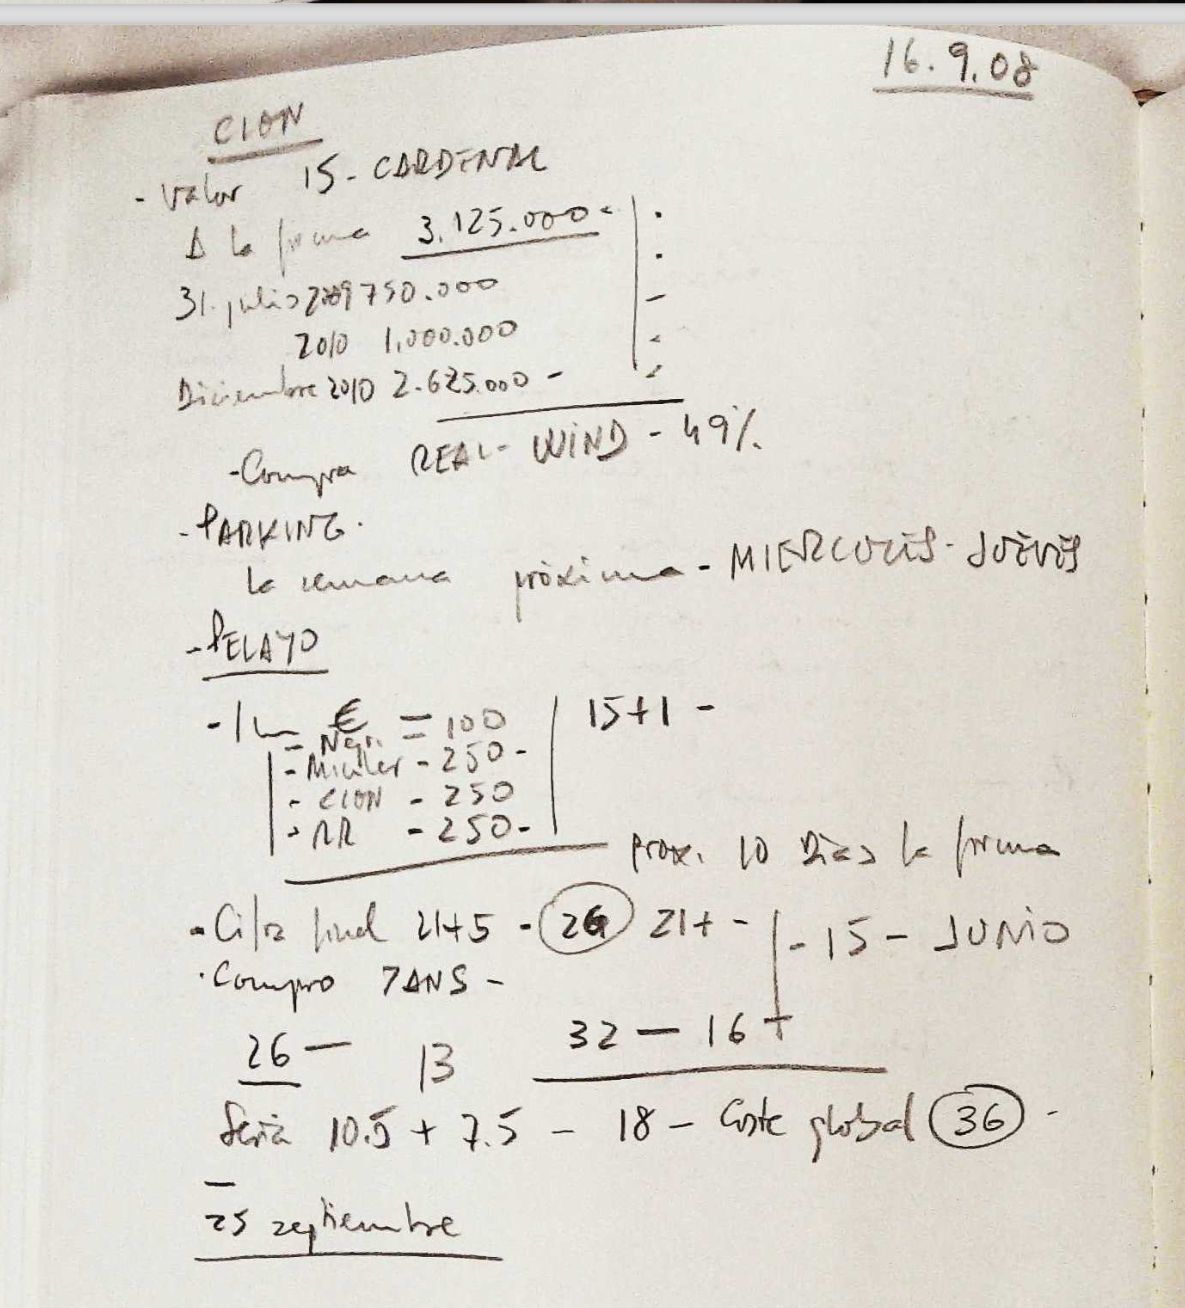 16.9.08
CION
- Valor 15 - CARDENAL
A la firma 3.125.000 -
31. julio 2009 750.000
2010 1.000.000
Diciembre 2010 2.625.000 -
- Compra REAL - WIND - 49%
- PARKING.
la semana próxima - MIERCOLES - JUEVES
- PELAYO
- 1 € = 100 15+1 -
- Ngr. =
- - 250 -
- CION - 250
- RR - 250 -
prox. 10 Dias la firma
- Cifra final 21+5 - 26 21+ - - 15 - JUNIO
- Compro 7ANS -
32 - 16 +
26 - 13
Seria 10.5 + 7.5 - 18 - Coste global 36 -
-
25 septiembre